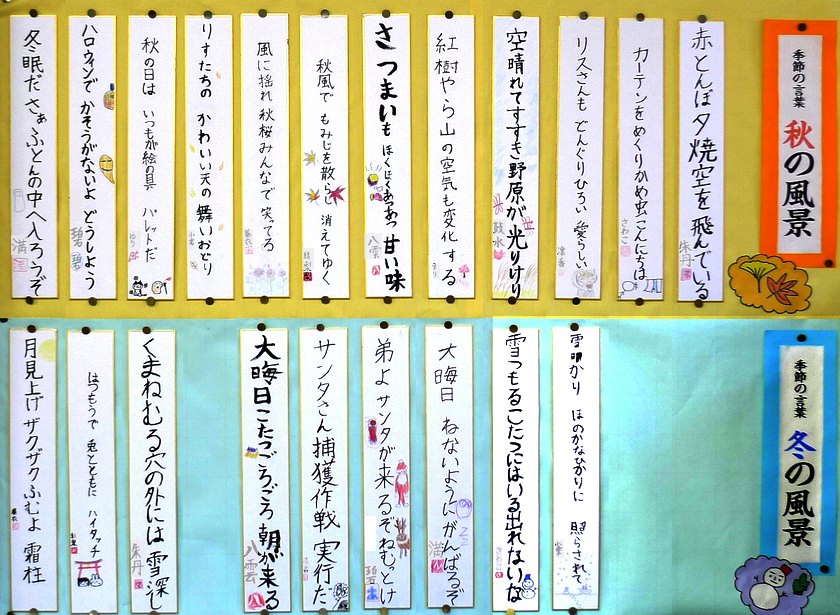 季節の言葉
秋の風景
赤とんぼ夕焼空を飛んでいる
朱丹
カーテンをめくりかめ虫こんにちは
さわこ
リスさんもどんぐりひろい愛らしい
空晴れてすすき野原が光りけり
紅樹やら山の空気も変化する
さつまいもほくほくあつあつ甘い味
八雲
秋風でもみじを散らし消えてゆく
風に揺れ秋桜みんなで笑ってる
りすたちのかわいい天の舞いおどり
秋の日はいつもが絵の具パレットだ
ハロウィンでかそうがないよどうしよう
碧
冬眠ださぁふとんの中へ入ろうぞ
満
季節の言葉
冬の風景
雪明かりほのかなひかりに照らされて
雪つもるこたつにはいる出れないな
さわこ
大晦日ねないようにがんばるぞ
満
弟よサンタが来るぞねむっとけ
サンタさん捕獲作戦実行だ
大晦日こたつごろごろ朝が来る
八雲
くまねむる穴の外には雪深し
朱丹
はつもうで兎とともにハイタッチ
月見上げザクザクふむよ霜柱